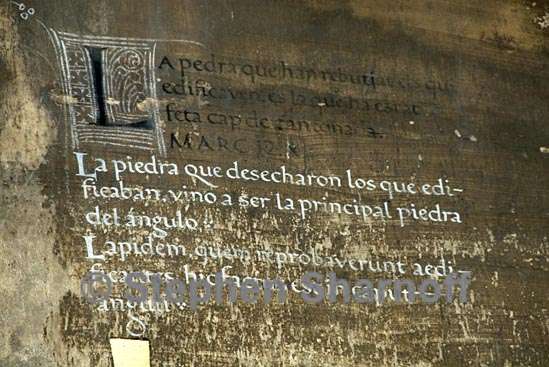 La pedra que han rebutjat els que
edificaven, es la que ha estat
feta cap de cantonada.
MARC 12 X
La piedra que desecharon los que edi-
ficaban, vino a ser la principal piedra
del ángulo.
Lapidem, quem reprobaverunt aedi-
ficantes, hic caput
anguli
© Stephen Sharnoff